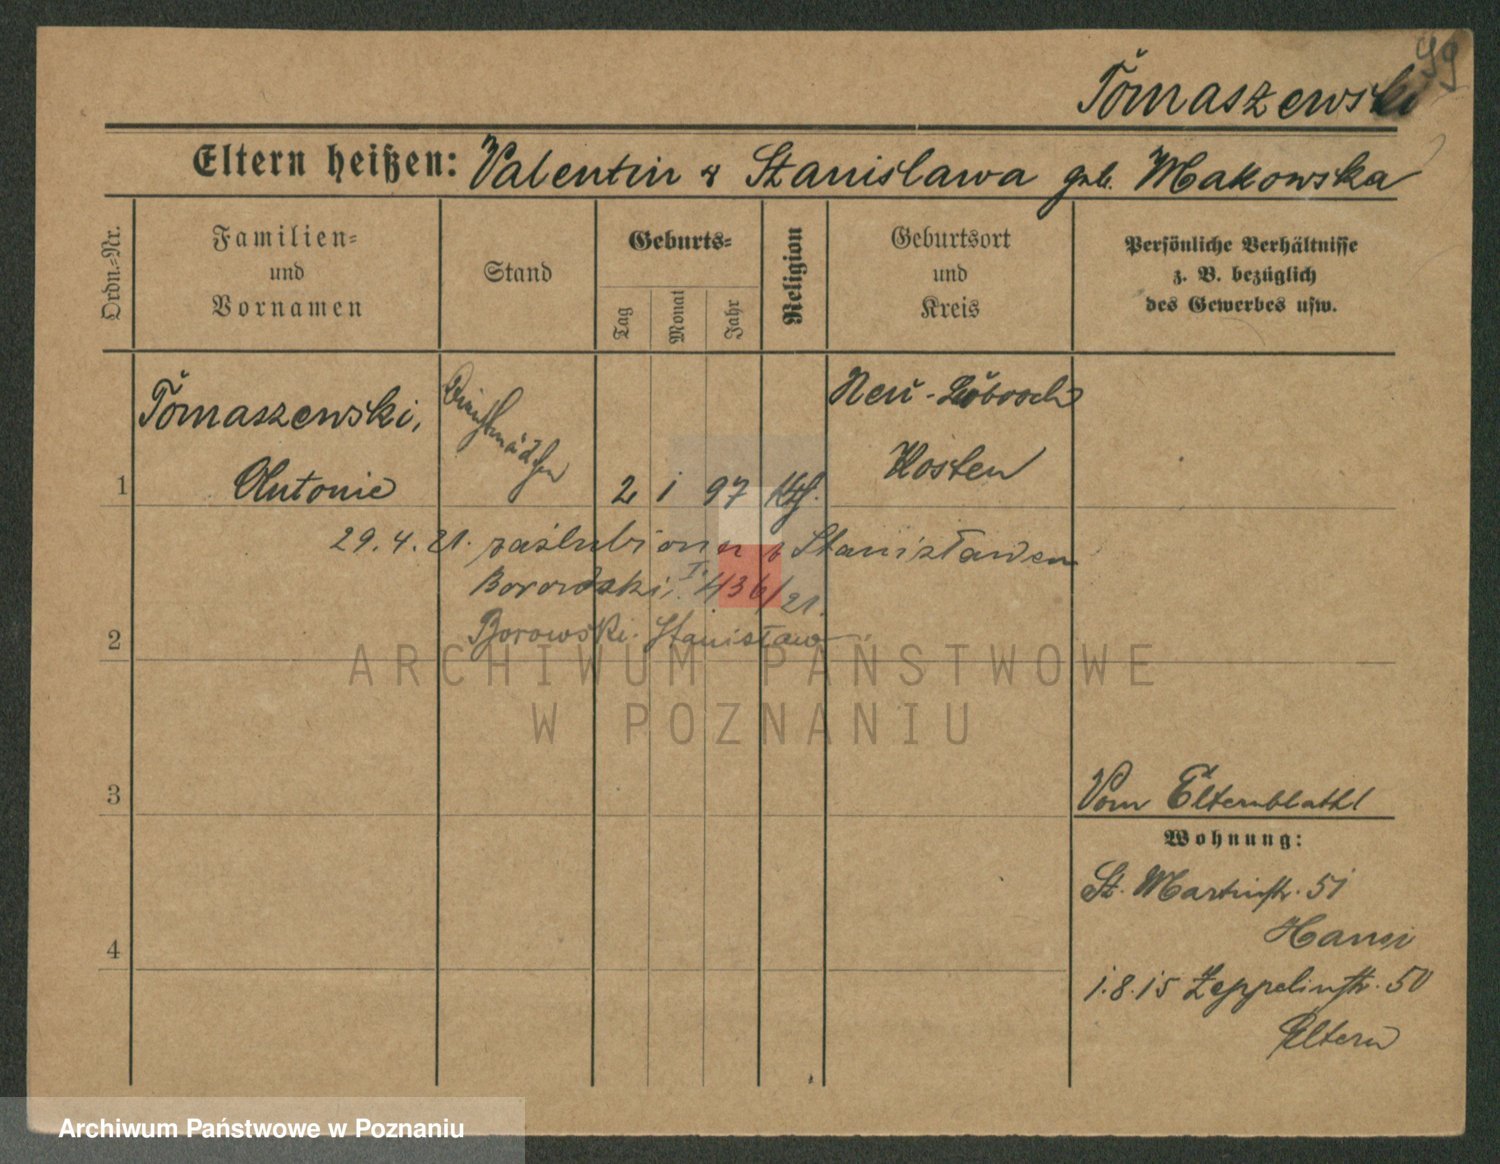 99
Tomaszewski
Eltern heißen: Valentin & Stanislawa geb. Makowska
Ordn.-Nr.
Familien- und Vornamen
Stand
Geburts-
Tag
Monat
Jahr
Religion
Geburtsort und Kreis
Persönliche Verhältnisse
z. B. bezüglich
des Gewerbes usw.
Tomaszewski,
Dienstmädchen
Neu-
Kosten
1
Antonie
2 1 97 Kth.
29.4.21. zaślubiona z Stanisławem
436/21.
2
Borowski Stanisław
ARCHIWUM PAŃSTWOWE
W POZNANIU
3
Vom Elternblatt
Wohnung:
St. Martinstr. 51
4
1.8.15 Zeppelinstr. 50
Eltern
Archiwum Państwowe w Poznaniu